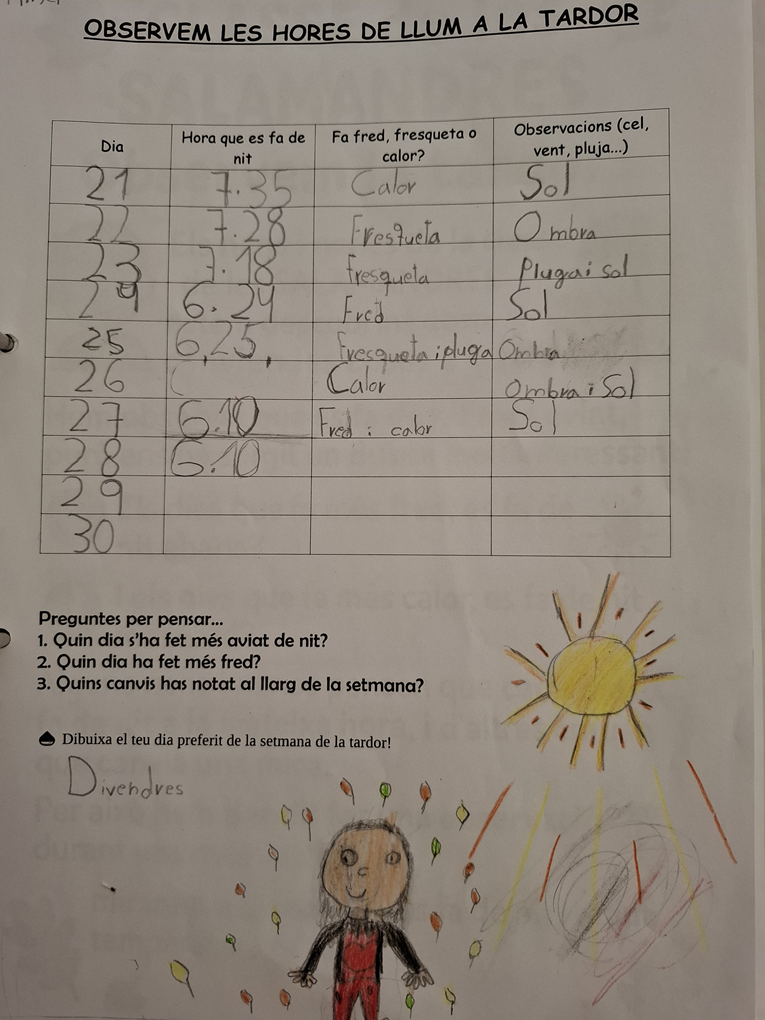 OBSERVEM LES HORES DE LLUM A LA TARDOR
Dia Hora que es fa de nit Fa fred, fresqueta o calor? Observacions (cel, vent, pluja...)
21 7.35 Calor Sol
22 7.28 Fresqueta Ombra
23 7.18 Fresqueta Plugai sol
24 6.24 Fred Sol
25 6,25, Fresqueta i pluga Ombra
26 Calor Ombra i Sol
27 6.10 Fred i calor Sol
28 6.10
29
30
Preguntes per pensar...
1. Quin dia s'ha fet més aviat de nit?
2. Quin dia ha fet més fred?
3. Quins canvis has notat al llarg de la setmana?
Dibuixa el teu dia preferit de la setmana de la tardor!
Divendres